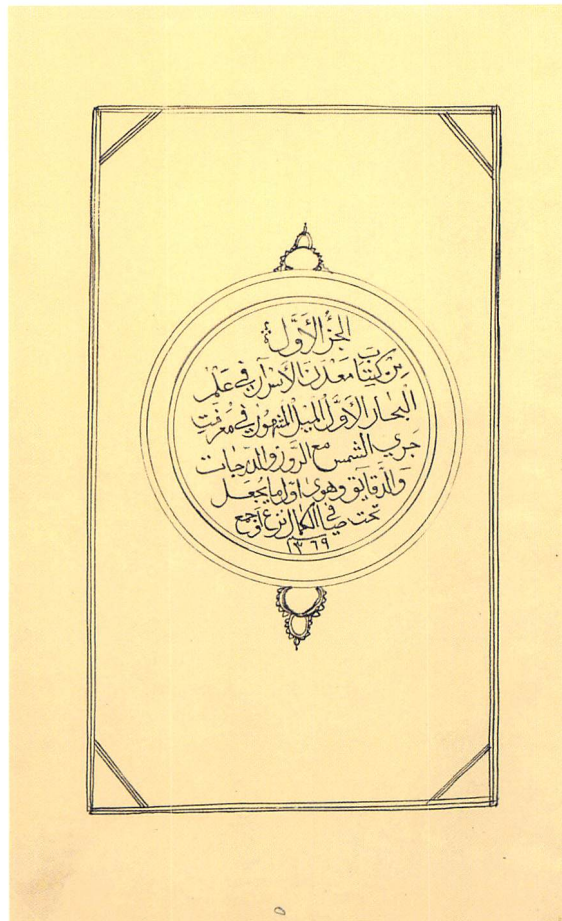 الجزُ الأَوَّل
مِن كِتَاب مَعْدَن الأَسْرَار في عَلَم
البحَار الأَوَّل الميل المشهور في مَعْرفَتِ
جَري الشمس مع الروز والدرجات
وَالدَّقَايق وهوى اوّل ما يُجعَل
تحت في الكمال
١٣٦٩
٥